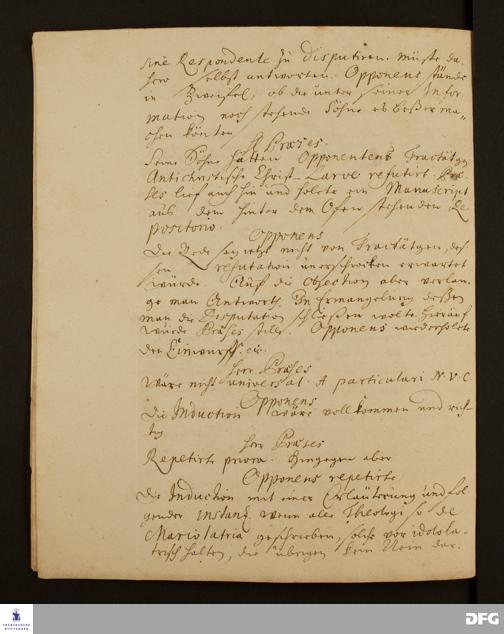 sine Respondente zu disputiren. müste da-
hero selbst antworten. Opponens stünde
in Zweifel, ob die unter seiner Infor-
mation noch stehende Söhne es beßer ma-
chen könten.
H. Præses.
Seine Söhne hätten Opponentens Tractätgen
Antichristische Christ-Larve refutirt. Præ-
ses lief auch hin und holete ein Manuscript
aus dem hinter dem Ofen stehenden Re-
positorio.
Opponens
Die Rede sey jetzt nicht von Tractätgen, des-
sen refutation unerschrocken erwartet
würde. Auf die Objection aber verlan-
ge man Antwort, In Ermangelung deßen
man die Disputation schließen wolte. Hierauf
wurde Præses stille. Opponens wiederholete
den Einwurff. etc.
Herr Præses
Wäre nicht universal. A particulari N. V. C.
Opponens
Die Induction wäre vollkommen und rich-
tig
Herr Præses
Repetirte priora. Hingegen aber
Opponens repetirte
Die Induction mit einer Erläuterung und fol-
gender instanz wenn alle Theologi so de
Mariolatria geschrieben, solche vor idolola-
trisch halten, die übrigen kein Nein dar-
TRANSKRIBUS
STIFTUNGEN
DFG